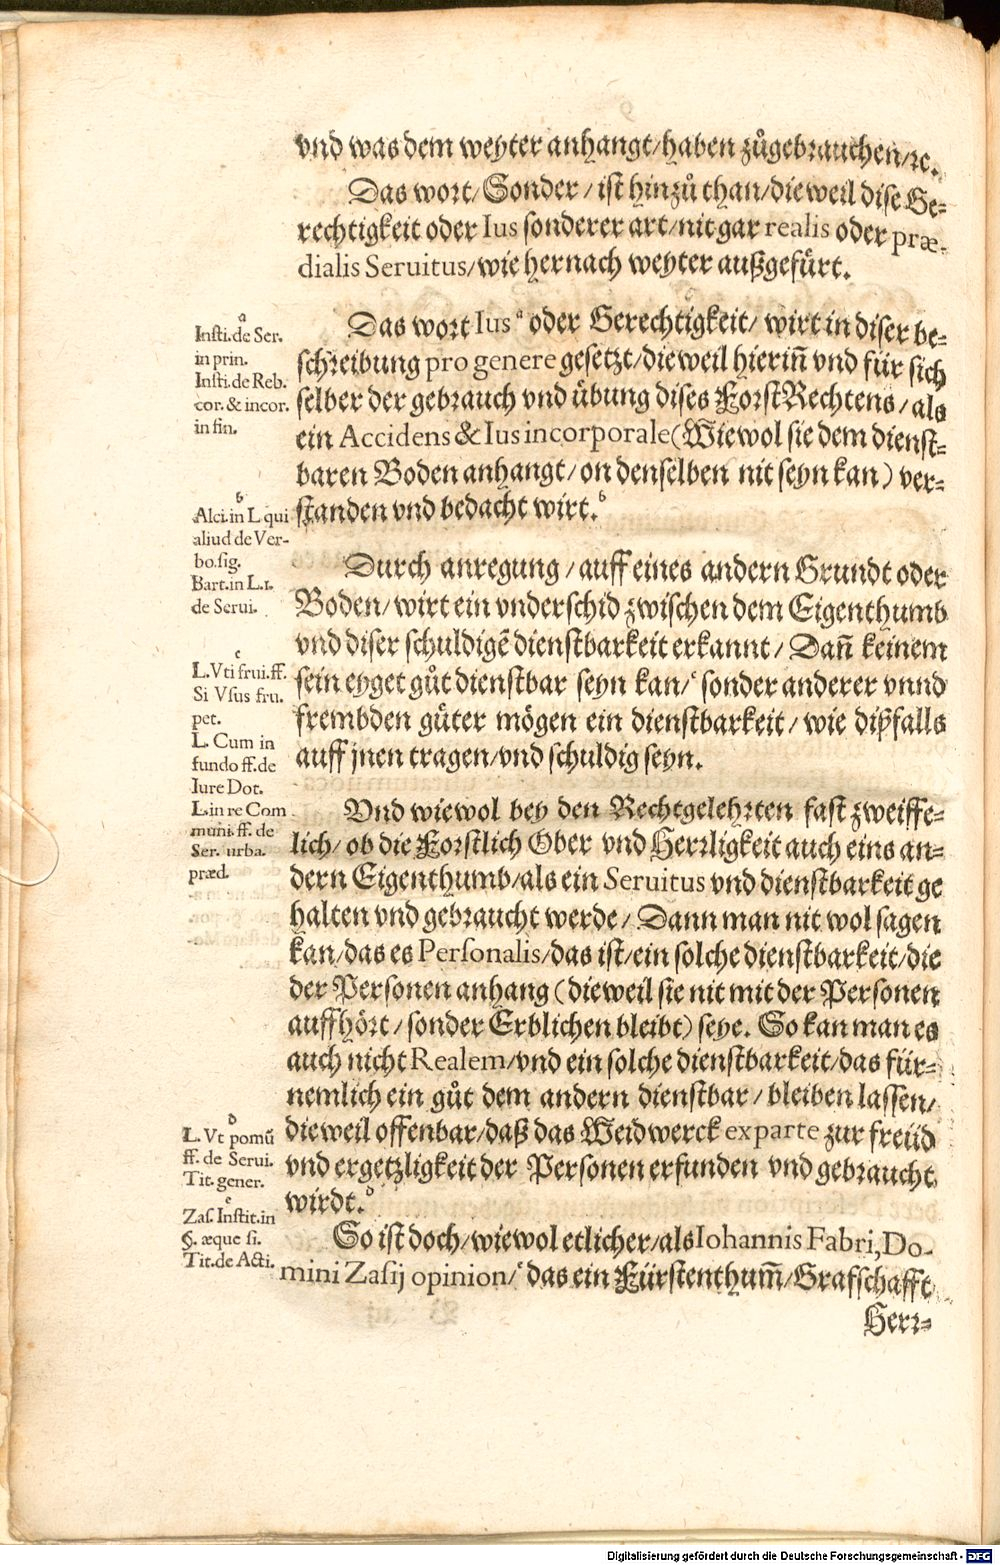 vnd was dem weyter anhangt/haben zůgebrauchen/ꝛc.
Das wort/Sonder/ist hinzů than/dieweil dise Ge-
rechtigkeit oder Ius sonderer art/nit gar realis oder præ-
dialis Seruitus/wie hernach weyter außgefürt.
Das wort Ius a oder Gerechtigkeit/wirt in diser be-
schreibung pro genere gesetzt/dieweil hierin̄ vnd für sich
selber der gebrauch vnd übung dises ForstRechtens/als
ein Accidens & Ius incorporale (Wiewol sie dem dienst-
baren Boden anhangt/on denselben nit seyn kan) ver-
standen vnd bedacht wirt. b
Durch anregung/auff eines andern Grundt oder
Boden/wirt ein vnderschid zwischen dem Eigenthumb
vnd diser schuldigē dienstbarkeit erkannt/Dan̄ keinem
sein eyget gůt dienstbar seyn kan/ c sonder anderer vnnd
frembden gůter mögen ein dienstbarkeit/wie dißfalls
auff jnen tragen/vnd schuldig seyn.
Vnd wiewol bey den Rechtgelehrten fast zweiffe-
lich/ob die Forstlich Ober vnd Herrligkeit auch eins an-
dern Eigenthumb/als ein Seruitus vnd dienstbarkeit ge
halten vnd gebraucht werde/Dann man nit wol sagen
kan/das es Personalis/das ist/ein solche dienstbarkeit/die
der Personen anhang (dieweil sie nit mit der Personen
auffhört/sonder Erblichen bleibt) seye. So kan man es
auch nicht Realem/vnd ein solche dienstbarkeit/das für-
nemlich ein gůt dem andern dienstbar/bleiben lassen/
dieweil offenbar/daß das Weidwerck ex parte zur freüd
vnd ergetzligkeit der Personen erfunden vnd gebraucht
wirdt. d
So ist doch/wiewol etlicher/als Iohannis Fabri, Do-
mini Zasij opinion/ e das ein Fürstenthum̄/Grafschafft
Herr-
a
Insti. de Ser.
in prin.
Insti. de Reb.
cor. & incor.
in fin.
b
Alci. in L. qui
aliud de Ver-
bo. sig.
Bart. in L. 1.
de Serui.
c
L. Vti frui. ff.
Si Vsus fru.
pet.
L. Cum in
fundo ff. de
Iure Dot.
L. in re Com
muni. ff. de
Ser. urba.
præd.
d
L. Vt pomū
ff. de Serui.
Tit. gener.
e
Zas. Instit. in
§. æque si.
Tit. de Acti.
Digitalisierung gefördert durch die Deutsche Forschungsgemeinschaft - DFG